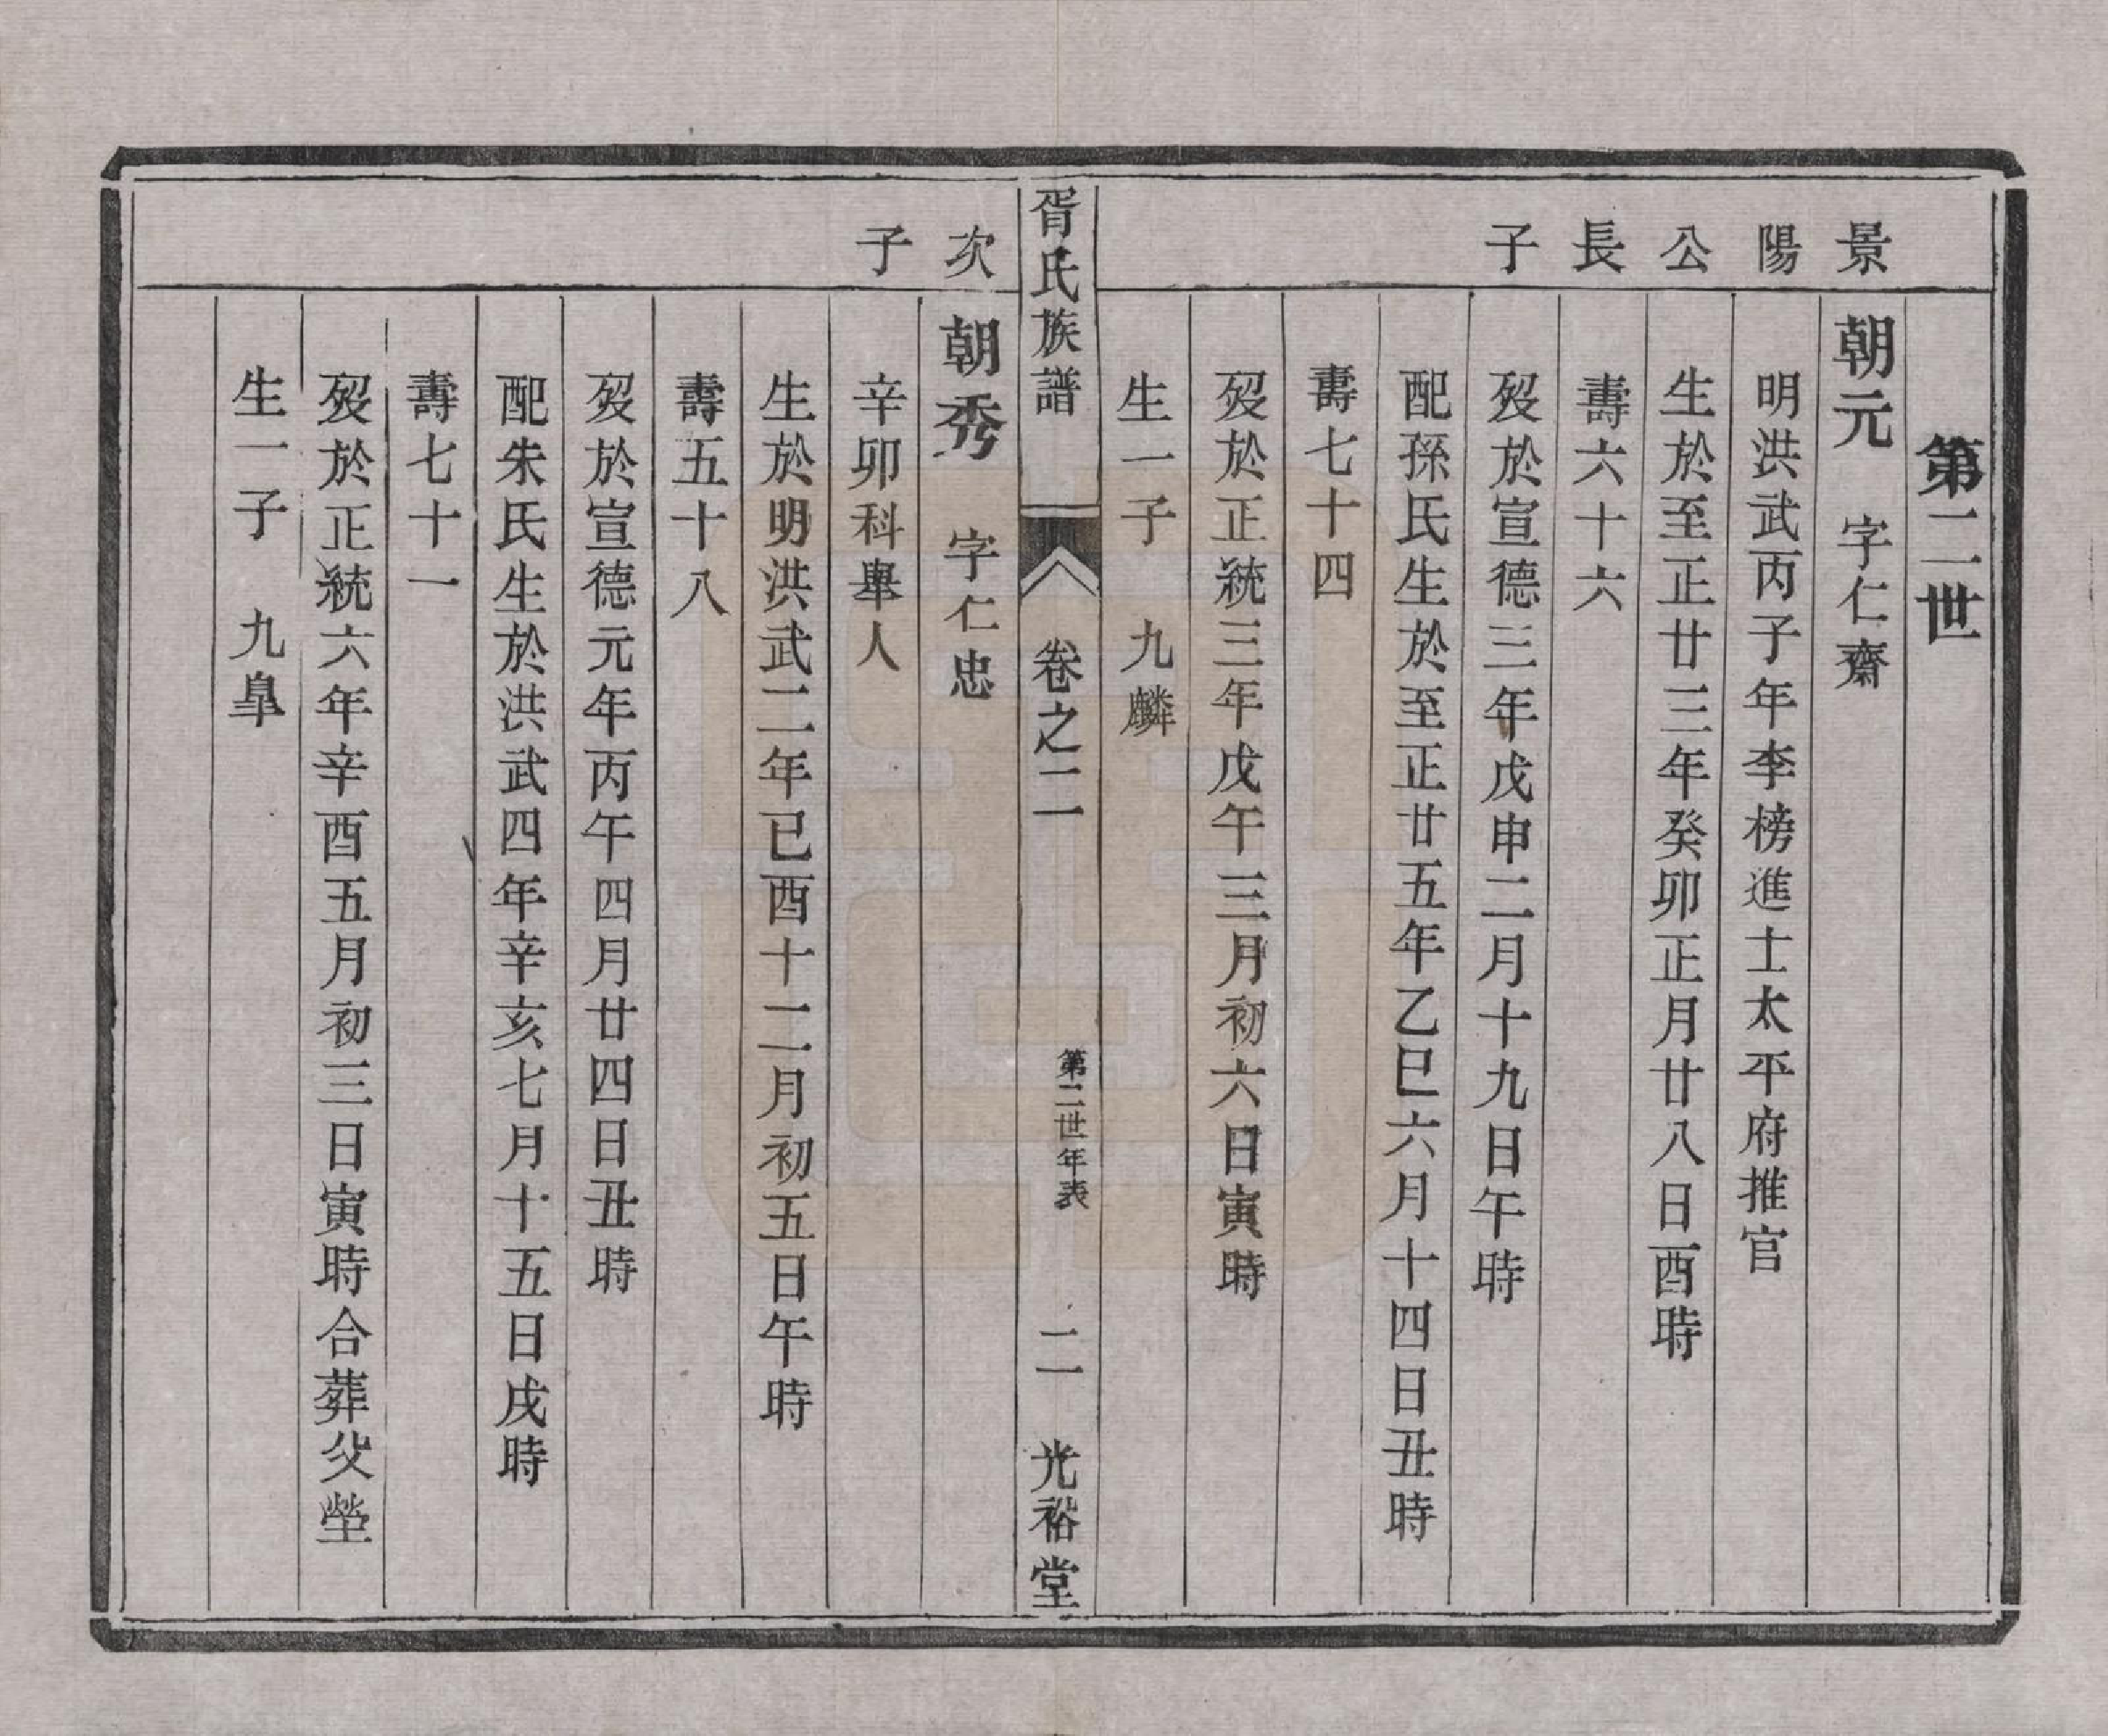 第二世
景陽公長子
朝元　字仁齋
明洪武丙子年李榜進士太平府推官
生於至正廿三年癸卯正月廿八日酉時
壽六十六
歿於宣德三年戊申二月十九日午時
配孫氏生於至正廿五年乙巳六月十四日丑時
壽七十四
歿於正統三年戊午三月初六日寅時
生一子　九麟
胥氏族譜　卷之二　第二世年表　二　光裕堂
次子
朝秀　字仁忠
辛卯科舉人
生於明洪武二年已酉十二月初五日午時
壽五十八
歿於宣德元年丙午四月廿四日丑時
配朱氏生於洪武四年辛亥七月十五日戌時
壽七十一
歿於正統六年辛酉五月初三日寅時合葬父塋
生一子　九臯